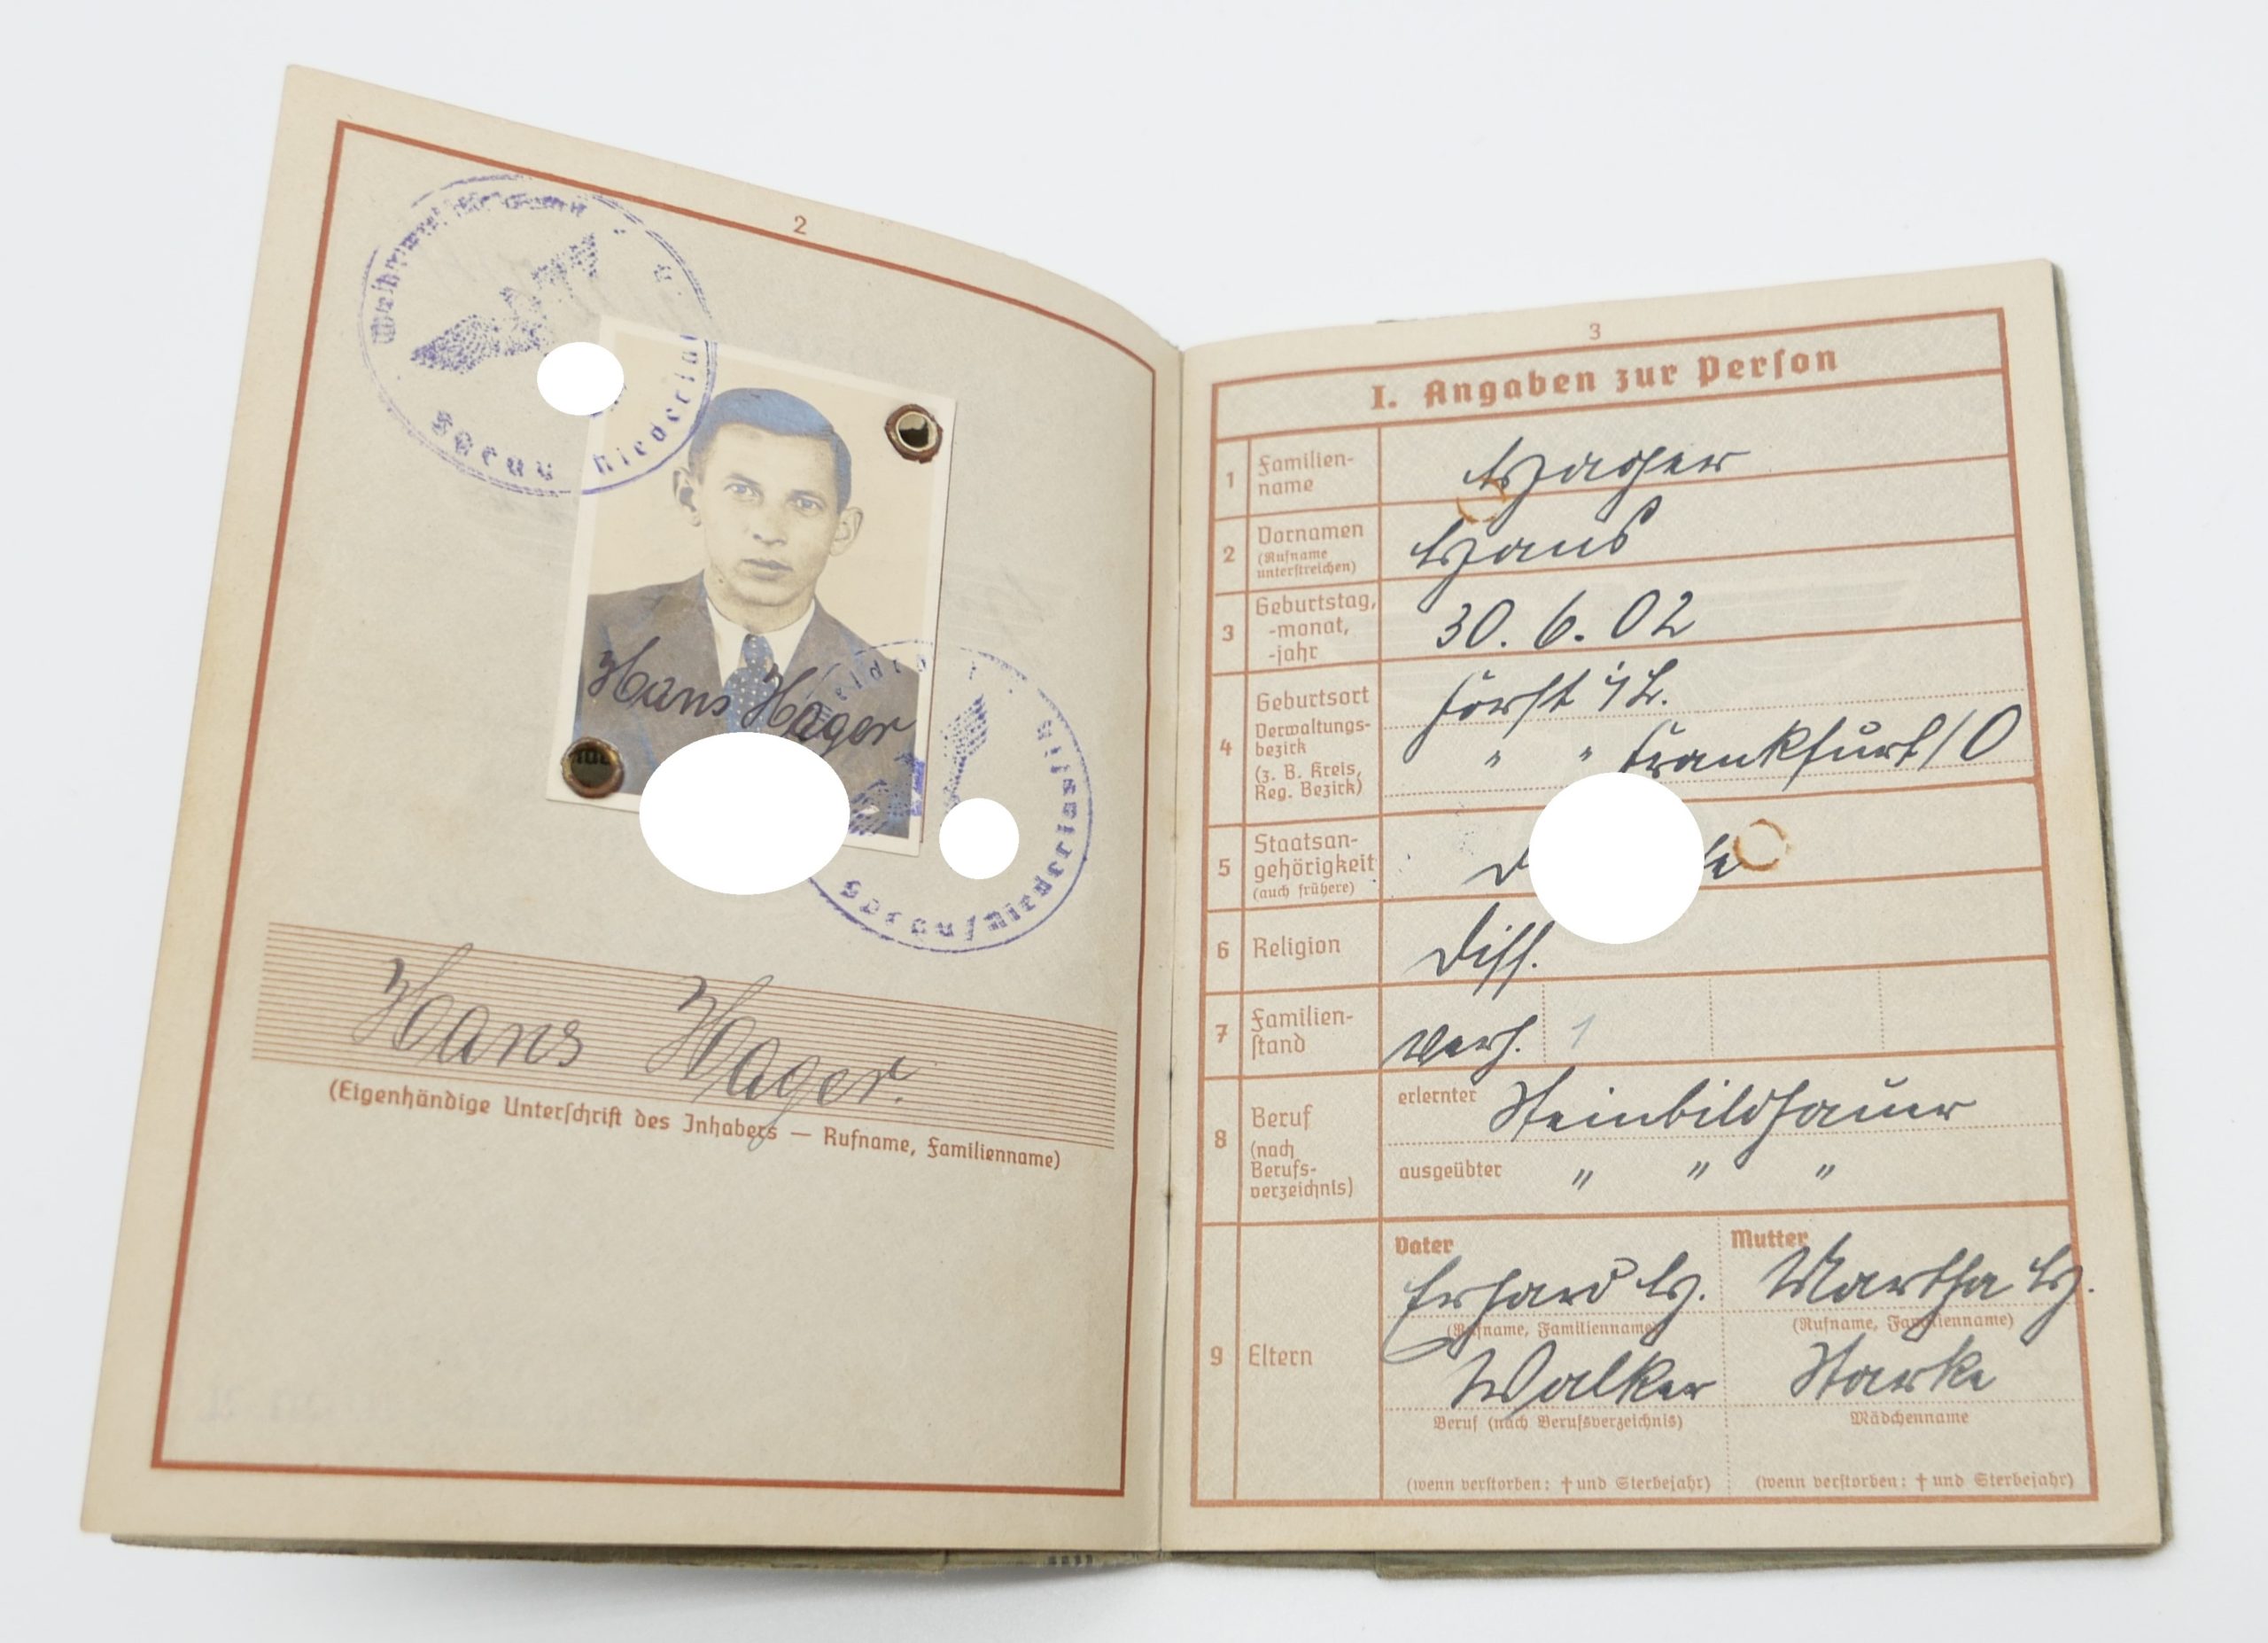 2
Sorau
Niederlau
Hans Hager
Sorau/Niederlausitz
Hans Hager.
(Eigenhändige Unterſchrift des Inhabers — Rufname, Familienname)
3
I. Angaben zur Perſon
1 Familien-
name
Hager
2 Vornamen
(Rufname
unterſtreichen)
Hans
3 Geburtstag,
-monat,
-jahr
30. 6. 02
4 Geburtsort
Verwaltungs-
bezirk
(z. B. Kreis,
Reg. Bezirk)
Forst i/L.
" " Frankfurt/O
5 Staatsan-
gehörigkeit
(auch frühere)
6 Religion
Diss.
7 Familien-
ſtand
verh. 1
8 Beruf
(nach
Berufs-
verzeichnis)
erlernter Steinbildhauer
ausgeübter " " "
9 Eltern
Vater
Erhard H.
(Rufname, Familienname)
Walker
Beruf (nach Berufsverzeichnis)
(wenn verſtorben: † und Sterbejahr)
Mutter
Martha H.
(Rufname, Familienname)
Starke
Mädchenname
(wenn verſtorben: † und Sterbejahr)